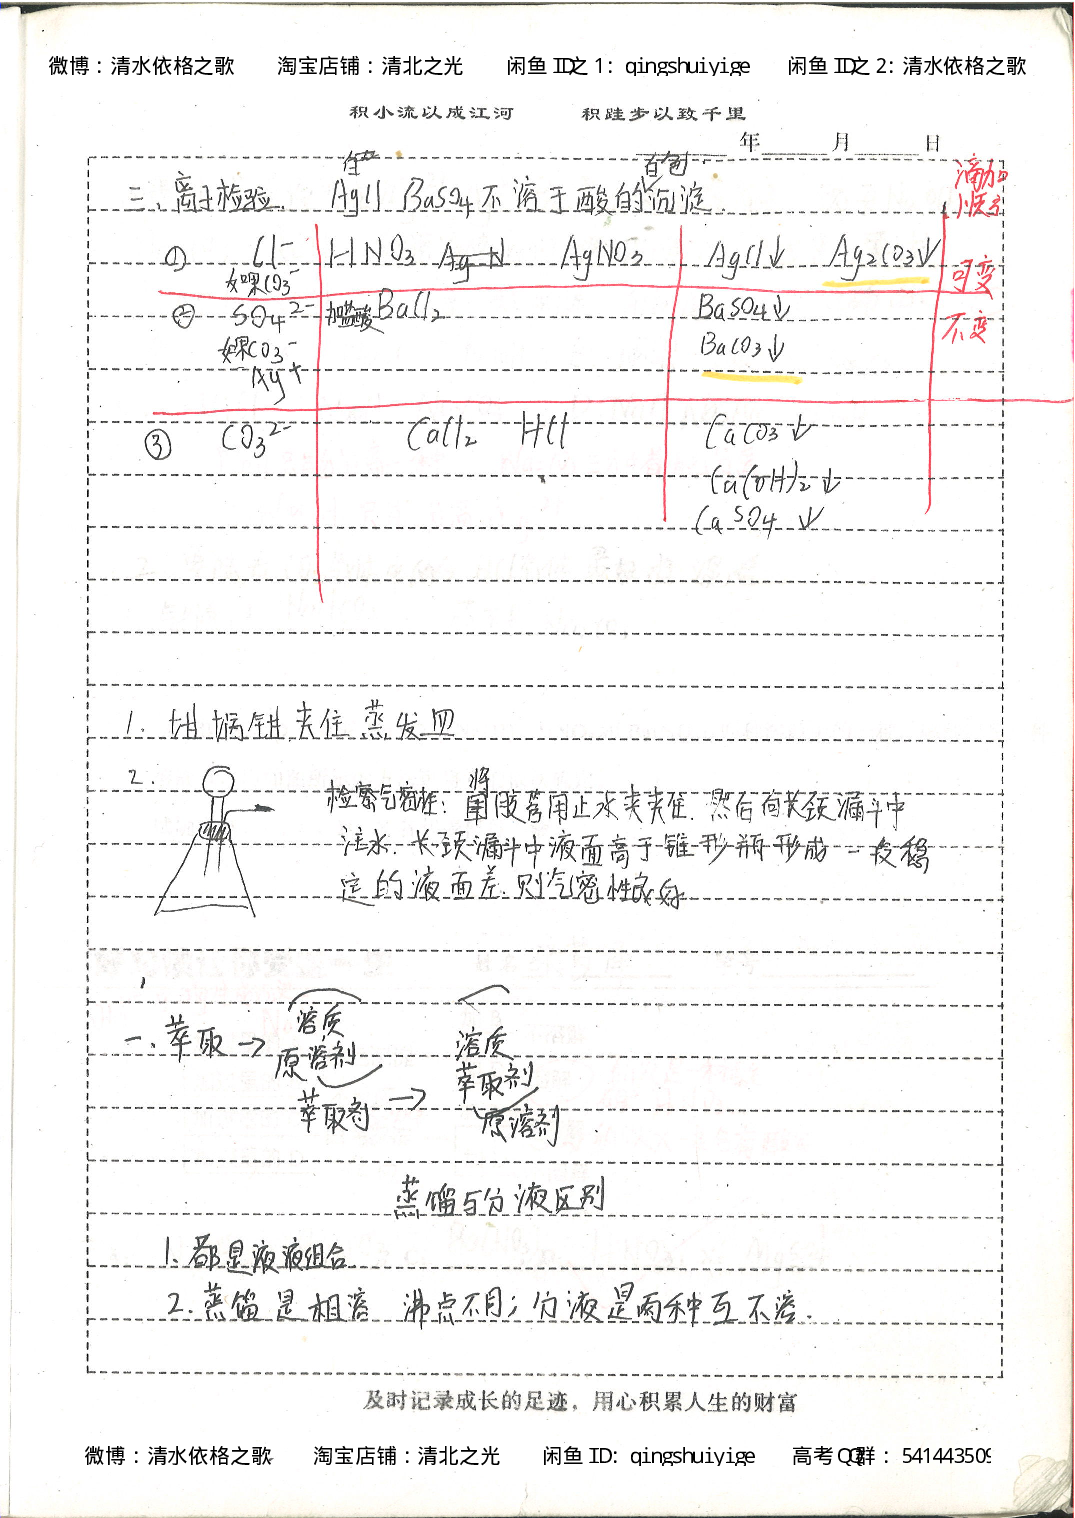 微博：清水依格之歌 淘宝店铺：清北之光 闲鱼 ID之 1: qingshuiyige 闲鱼 ID之 2: 清水依格之歌
积小流以成江河 积跬步以致千里
年 月 日
白色
三、离子检验. AgCl BaSO4 不溶于酸的沉淀.
滴加
顺序
① Cl- HNO3 AgNO3 AgCl↓ Ag2CO3↓
如果CO3-
可变
② SO4 2- 加盐酸 BaCl2 BaSO4↓
不变
如果CO3- BaCO3↓
Ag+
③ CO3 2- CaCl2 HCl CaCO3↓
Ca(OH)2↓
CaSO4↓
1. 坩埚钳夹住蒸发皿
2.
检察气密性：将胶管用止水夹夹住.然后向长颈漏斗中
注水.长颈漏斗中液面高于锥形瓶形成一段稳
定的液面差.则气密性良好
一、萃取→ 溶质 原溶剂 萃取剂 → 溶质 萃取剂 原溶剂
蒸馏与分液区别
1. 都是液液组合
2. 蒸馏是相溶 沸点不同；分液是两种互不溶.
及时记录成长的足迹，用心积累人生的财富
微博：清水依格之歌 淘宝店铺：清北之光 闲鱼 ID: qingshuiyige 高考 QQ群： 541443509